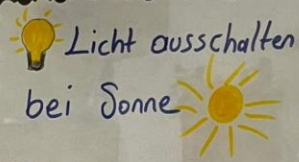 Licht ausschalten
bei Sonne